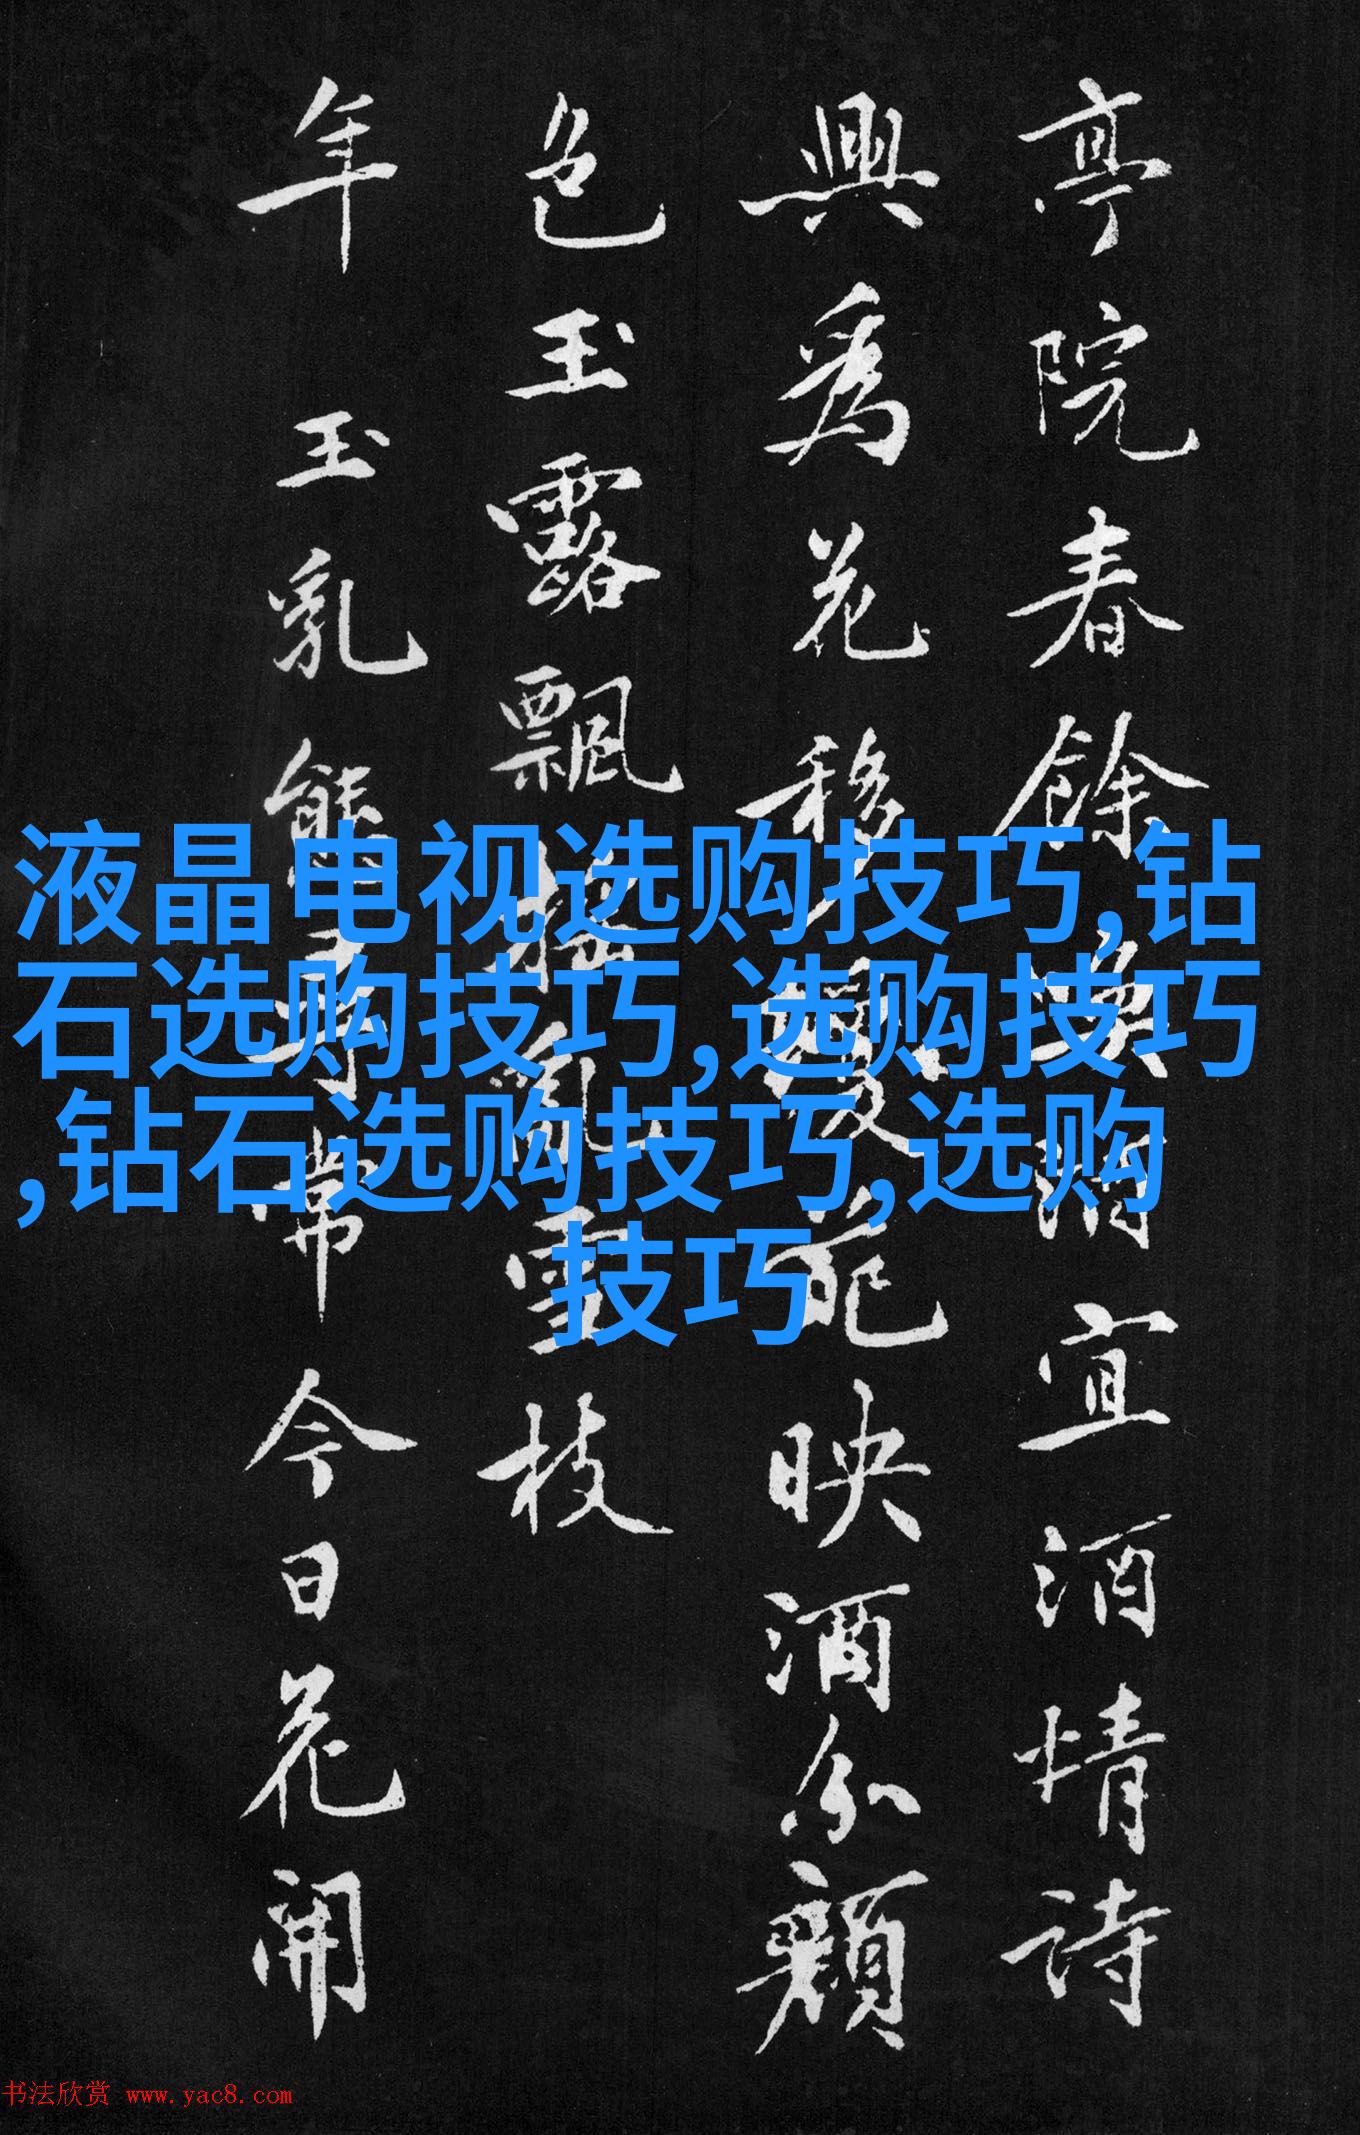 亭院春餘宜酒情詩
興爲花移花映酒分顏
色玉露飄搖亂雪枝
年玉乳常今日花開
液晶电视选购技巧,钻
石选购技巧,选购技巧
,钻石选购技巧,选购
技巧
书法欣赏 www.yac8.com